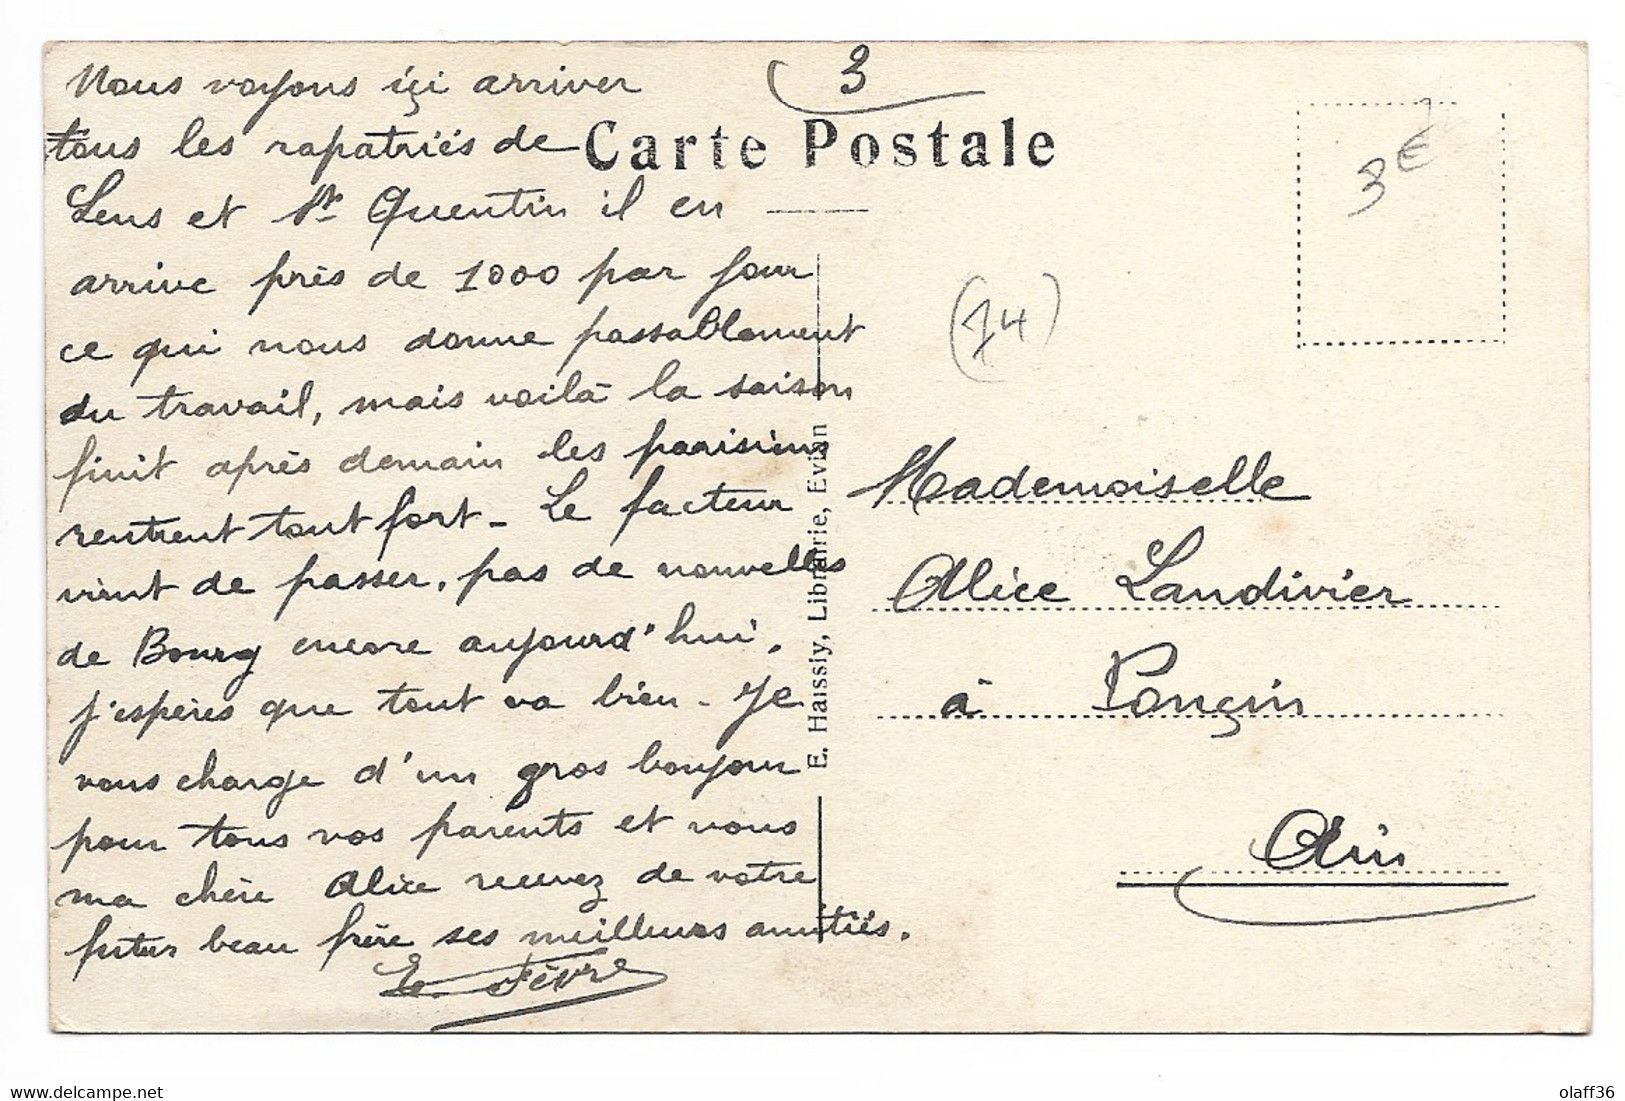 Nous voyons içi arriver
tous les rapatriés de
Lens et St Quentin il en
arrive près de 1000 par jour
ce qui nous donne passablement
du travail, mais voilà la saison
finit après demain les parisiens
rentrent tout fort - Le facteur
vient de passer, pas de nouvelles
de Bourg encore aujourd'hui,
j'espères que tout va bien - Je
vous charge d'un gros bonjour
pour tous vos parents et vous
ma chère Alice recevez de votre
futur beau frère ses meilleures amitiés.
E. Fèvre
3
Carte Postale
3€
(74)
E. Haissly, Librairie, Evian
Mademoiselle
Alice Landivier
à Ponçin
Ain
delcampe.net
olaff36